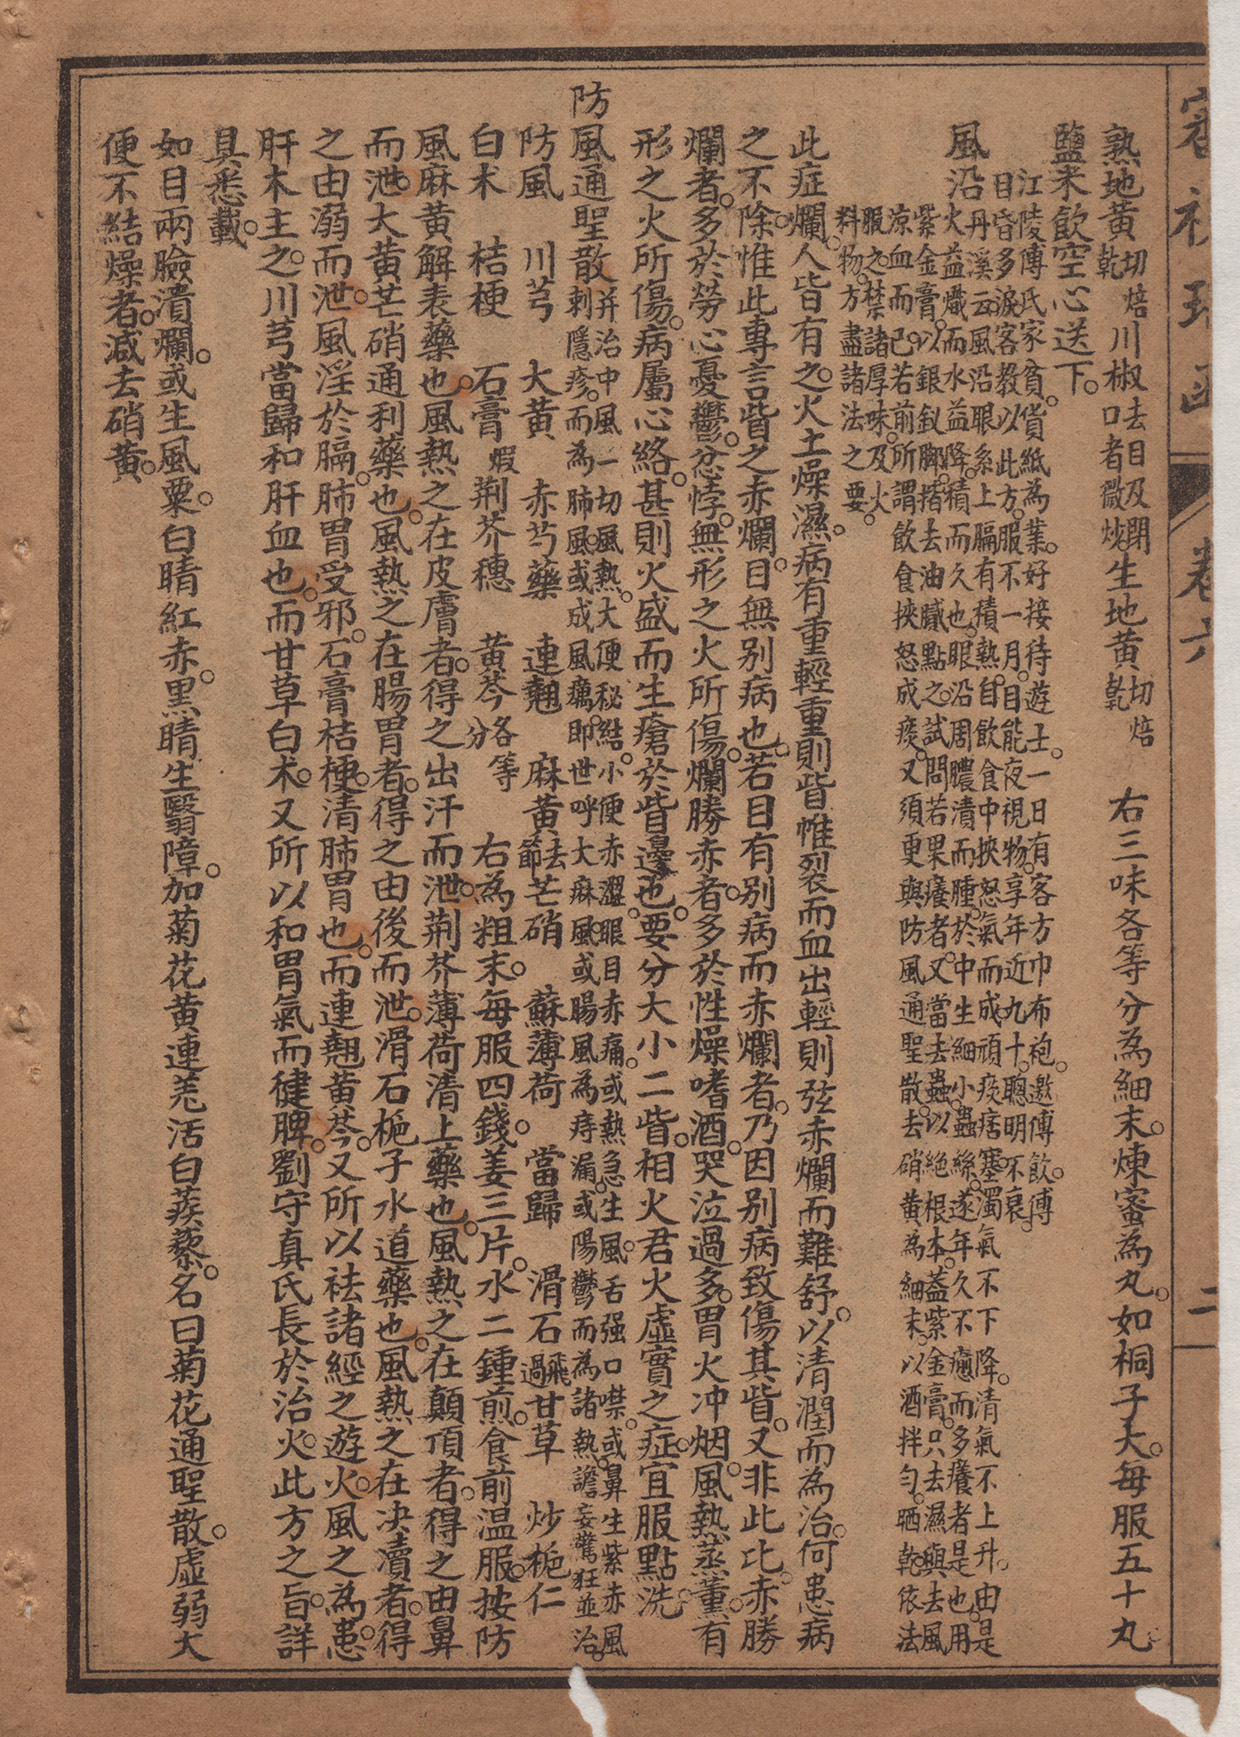 審視瑤函 卷六 二
熟地黃切焙乾 川椒去目及閉口者微炒 生地黃切焙乾 右三味各等分為細末。煉蜜為丸。如桐子大。每服五十丸
鹽米飲空心送下。
江陵傅氏家貧。貨紙為業。好接待遊士。一日有客方巾布袍。邀傅飲。傅
目昏多淚。客教以此方。服不一月。目能夜視物。享年近九十。聰明不衰。
風沿 丹溪云。風沿眼系上膈有積熱。自飲食中挾怒氣而成頑痰痞塞。濁氣不下降。清氣不上升。由是
火益熾而水益降。積而久也。眼沿因膿潰而腫。於中生細小蟲絲。遂年久不癒而多癢者是也。用
紫金膏。以銀釵脚揩去油膩點之。試問若果癢者。又當去蟲。以絶根本。蓋紫金膏。只去濕與去風
涼血而已。若前所謂飲食挾怒成痰。又須更與防風通聖散去硝黃為細末。以酒拌勻。晒乾依法
服之。禁諸厚味。及火
料物。方盡諸法之要。
此症爛。人皆有之。火土燥濕。病有重輕重則眥帷裂而血出輕則弦赤爛而難舒。以清潤而為治。何患病
之不除。惟此專言眥之赤爛。目無别病也。若目有别病而赤爛者。乃因别病致傷其眥。又非此比。赤勝
爛者。多於勞心憂鬱。忿悖。無形之火所傷。爛勝赤者。多於性燥嗜酒。哭泣過多。胃火冲烟。風熱蒸薰。有
形之火所傷。病屬心絡。甚則火盛而生瘡於眥邊也。要分大小二眥。相火君火虛實之症。宜服點洗
防風通聖散 并治中風一切風熱。大便秘結。小便赤澀。眼目赤痛。或熱急生風。舌强口噤。或鼻生紫赤風
刺隱疹。而為肺風。或成風癘。即世呼大麻風。或腸風為痔漏。或陽鬱而為諸熱。譫妄驚狂並治。
防風 川芎 大黃 赤芍藥 連翹 麻黃去節 芒硝 蘇薄荷 當歸 滑石飛過 甘草 炒梔仁
白朮 桔梗 石膏煅 荆芥穗 黃芩各等分 右為粗末。每服四錢。姜三片。水二鍾煎。食前温服。按防
風麻黃解表藥也。風熱之在皮膚者。得之出汗而泄。荆芥薄荷清上藥也。風熱之在顛頂者。得之由鼻
而泄。大黃芒硝通利藥也。風熱之在腸胃者。得之由後而泄。滑石梔子水道藥也。風熱之在决瀆者。得
之由溺而泄。風淫於膈。肺胃受邪。石膏桔梗。清肺胃也。而連翹黃芩。又所以祛諸經之遊火。風之為患。
肝木主之。川芎當歸和肝血也。而甘草白朮。又所以和胃氣而徤脾。劉守真氏長於治火。此方之旨。詳
具悉載。
如目兩瞼潰爛。或生風粟。白睛紅赤。黑睛生翳障。加菊花黃連羌活白蒺藜。名曰菊花通聖散。虛弱大
便不結燥者。減去硝黃。